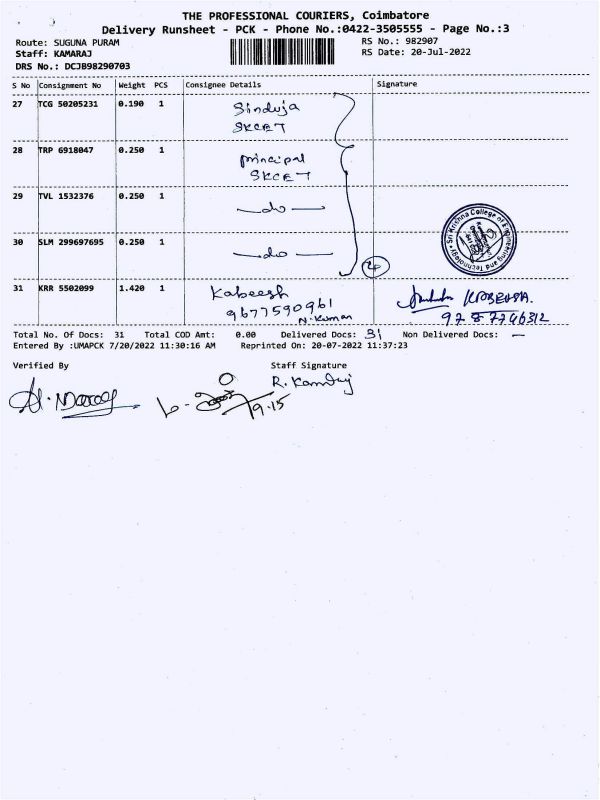 THE PROFESSIONAL COURIERS, Coimbatore
Delivery Runsheet - PCK - Phone No.:0422-3505555 - Page No.:3
Route: SUGUNA PURAM RS No.: 982907
Staff: KAMARAJ RS Date: 20-Jul-2022
DRS No.: DCJB98290703
S No Consignment No Weight PCS Consignee Details Signature
27 TCG 50205231 0.190 1 Sinduja
SKCET
28 TRP 6918047 0.250 1 principal
SKCET
29 TVL 1532376 0.250 1 —do—
30 SLM 299697695 0.250 1 —do—
Sri Krishna College of Engineering and Technology
31 KRR 5502099 1.420 1 Kabeesh
9677590961
N. Kumar
Total No. Of Docs: 31 Total COD Amt: 0.00 Delivered Docs: 31 Non Delivered Docs: —
Entered By :UMAPCK 7/20/2022 11:30:16 AM Reprinted On: 20-07-2022 11:37:23
Verified By Staff Signature
9.15